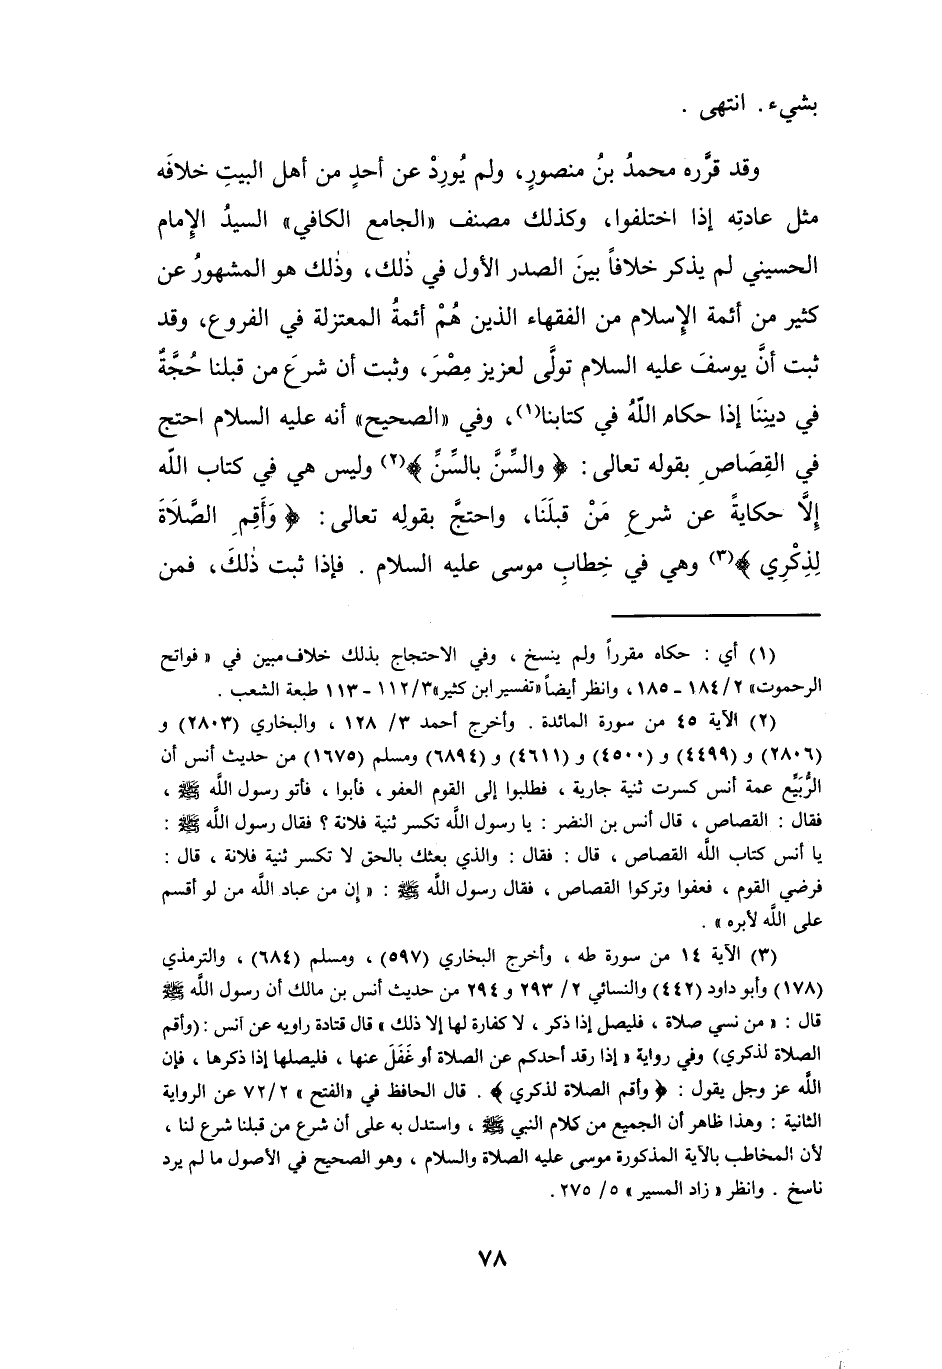 بشيء. انتهى .
وقد قرَّره محمدُ بنُ منصورٍ، ولم يُورِدْ عن أحدٍ من أهل البيتِ خلافَه
مثل عادتِه إذا اختلفوا، وكذلك مصنف «الجامع الكافي» السيدُ الإمام
الحسيني لم يذكر خلافاً بينَ الصدر الأول في ذٰلك، وذٰلك هو المشهورُ عن
كثير من أئمة الإسلام من الفقهاء الذين هُمْ أئمةُ المعتزلة في الفروع، وقد
ثبت أنَّ يوسفَ عليه السلام تولَّى لعزيز مِصْرَ، وثبت أن شرعَ من قبلنا حُجَّةٌ
في دينِنَا إذا حكاه اللّٰهُ في كتابنا(١)، وفي «الصحيح» أنه عليه السلام احتج
في القِصَاصِ بقوله تعالى: ﴿ والسِّنَّ بالسِّنِّ ﴾(٢) وليس هي في كتاب اللّٰه
إلَّا حكايةً عن شرعِ مَنْ قبلَنَا، واحتجَّ بقولِه تعالى: ﴿ وَأَقِمِ الصَّلَاةَ
لِذِكْرِي ﴾(٣) وهي في خِطابِ موسى عليه السلام . فإذا ثبت ذٰلكَ، فمن
(١) أي : حكاه مقرراً ولم ينسخ ، وفي الاحتجاج بذلك خلاف مبين في « فواتح
الرحموت» ٢/ ١٨٤ - ١٨٥ ، وانظر أيضاً «تفسير ابن كثير» ٣/ ١١٢ - ١١٣ طبعة الشعب .
(٢) الآية ٤٥ من سورة المائدة . وأخرج أحمد ٣/ ١٢٨ ، والبخاري (٢٨٠٣) و
(٢٨٠٦) و (٤٤٩٩) و (٤٥٠٠) و (٤٦١١) و (٦٨٩٤) ومسلم (١٦٧٥) من حديث أنس أن
الرُّبَيِّع عمة أنس كسرت ثنية جارية ، فطلبوا إلى القوم العفو ، فأبوا ، فأتو رسول اللَّه ﷺ ،
فقال : القصاص ، قال أنس بن النضر : يا رسول اللَّه تكسر ثنية فلانة ؟ فقال رسول اللَّه ﷺ :
يا أنس كتاب اللَّه القصاص ، قال : فقال : والذي بعثك بالحق لا تكسر ثنية فلانة ، قال :
فرضي القوم ، فعفوا وتركوا القصاص ، فقال رسول اللَّه ﷺ : « إن من عباد اللَّه من لو أقسم
على اللَّه لأبره » .
(٣) الآية ١٤ من سورة طه ، وأخرج البخاري (٥٩٧) ، ومسلم (٦٨٤) ، والترمذي
(١٧٨) وأبو داود (٤٤٢) والنسائي ٢/ ٢٩٣ و ٢٩٤ من حديث أنس بن مالك أن رسول اللَّه ﷺ
قال : « من نسي صلاة ، فليصل إذا ذكر ، لا كفارة لها إلا ذلك » قال قتادة راويه عن أنس : (وأقم
الصلاة لذكري) وفي رواية « إذا رقد أحدكم عن الصلاة أو غَفَلَ عنها ، فليصلها إذا ذكرها ، فإن
اللَّه عز وجل يقول : ﴿ وأقم الصلاة لذكري ﴾ . قال الحافظ في «الفتح » ٢/ ٧٢ عن الرواية
الثانية : وهذا ظاهر أن الجميع من كلام النبي ﷺ ، واستدل به على أن شرع من قبلنا شرع لنا ،
لأن المخاطب بالآية المذكورة موسى عليه الصلاة والسلام ، وهو الصحيح في الأصول ما لم يرد
ناسخ . وانظر « زاد المسير » ٥/ ٢٧٥ .
٧٨